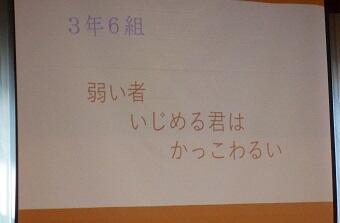 ３年６組
弱い者
いじめる君は
かっこわるい